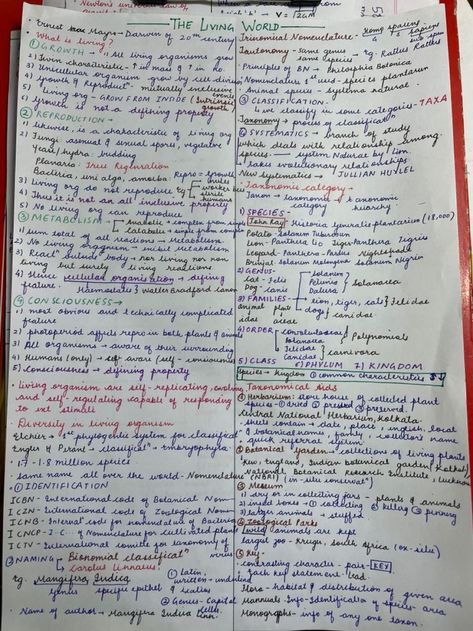 THE LIVING WORLD
Ernst Mayr - Darwin of 20th century
What is living?
① GROWTH → 1) All living organisms grow
2) Twin characteristic - ↑ in mass & ↑ in no.
3) Multicellular organism grow by cell division
4) Growth & Reproductn - mutually exclusive
5) living org - GROW FROM INSIDE (Intrinsic growth)
6) Growth is not a defining property
② REPRODUCTION →
1) likewise, is a characteristic of living org
2) Fungi - asexual & sexual spores, vegetative
Yeast/hydra - budding
Planaria - True Regeneration
Bacteria, uni algo, amoeba - Repro = Growth
3) living org do not reproduce eg mule
worker bee
sterile
humans
4) Thus it is not an all inclusive property
5) No. living org can reproduce
③ METABOLISM → Anabolic = complex from simple
Catabolic = simple from complex
1) Sum total of all reactions → Metabolism
2) No living organism → without Metabolism
3) Reactn outside body → nor living nor non
living but surely → living reactions
4) Hence cellular organisation → defining
feature
④ CONSCIOUSNESS →
1) most obvious and technically complicated
feature
2) photoperiod affects repro in both plants & animals
3) All organisms → aware of their surrounding
4) Humans (only) → self-aware (self-consciousness)
5) Consciousness → defining property
• living organism are self-replicating, evolving
and self-regulating capable of responding
to ext stimuli
• Diversity in living organism
Eichler → 1st phylogenetic system for classificatn
Engler & Pranti → classificatn → embryophyta
1.7 - 1.8 million species
• Same name all over the world - Nomenclature
① IDENTIFICATION
ICBN - International code of Botanical Nom-
ICZN - International code of Zoological Nom-
ICNB - Internat code for nomenclature of Bacteria
ICNCP - I.C. of Nomenclature for cultivated plants
ICTV - International committe for taxonomy of
virus
② NAMING → Bionomial classificatn
↳ Carolus Linnaeus
eg. Mangifera Indica
Genus specific epithet
1) latin,
written → underlined
& italics
② Genus - Capital letter
• Name of author → Mangifera Indica Linn.
Trinomial Nomenclature -
Homo sapiens sapiens
G S sub spe
Tautonomy - same genus
same species eg. Rattus Rattus
Principles of BN → Philosophia Botanica
Nomenclature 1st used → species plantarum
Animal species - systema naturae
③ CLASSIFICATION
↳ we classify in some categories - TAXA
Taxonomy → process of classificatn
④ SYSTEMATICS → branch of study
which deals with relationship among
species → systema Naturae by Linn
• takes evolutionary relationships
New Systematics → JULLIAN HUXLEY
• Taxonomic category →
Taxon → taxonomic → taxonomic
category hierarchy
1) SPECIES -
John Ray
Potato - Solanum Tuberosum
Lion - Panthera Leo Tiger - Panthera Tigris
Leopard - Panthera - Pardus Nightshade
Brinjal - Solanum Melongena Solanum Nigrum
2) GENUS -
Cat - Felis
Dog - Canis
Solanum
Petunia
Datura
Solanacea
3) FAMILIES →
animal plant
idae aceae
lion, tiger, cat } Felidae
dog } canidae
4) ORDER → convolvulaceae
Solanacea
} Polynomials
Felidae
Canidae } carnivora
5) CLASS 6) PHYLUM 7) KINGDOM
Species → kingdom ① common characteristics ↓
• Taxonomical Aids
① Herbarium: store house of collected plant
species - ① dried ② pressed ③ preserved
Central National Herbarium, Kolkata
• sheet contain → date, place, english, local
& botanical names, family, collectors name
• quick referral system
② Botanical Garden → collections of living plants
Kew, england, Indian botanical garden (Kolkata)
National Botanical Research Institute, Lucknow
(NBRI) (in-situ conservatn)
③ Museum
2) insect boxes → ① collecting ② killing ③ pinning
3) larger animals → stuffed
④ Zoological Parks
• Wild animals are kept
• largest zoo - Kruger, South Africa (ex-situ)
⑤ Key -
• contrasting character - pair - KEY
• Each key statement - lead
• Flora → habitat & distribution of given area
• Mannuals Info - Identificatn of species - area
• Monographs - info of any one taxon.